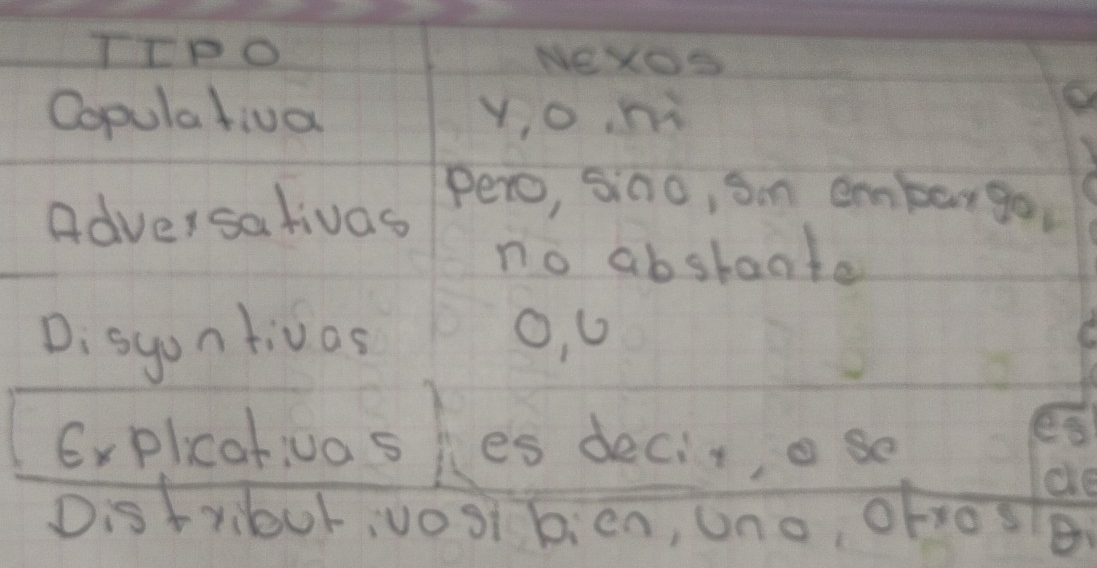 TIPO NEXOS
Copulativa y, o, ni
Pero, sino, sin embargo,
Adversativas
no abstante
Disyuntivas O, U
Explicativas es decir, o se
es
de
Distributivos bien, uno, otros